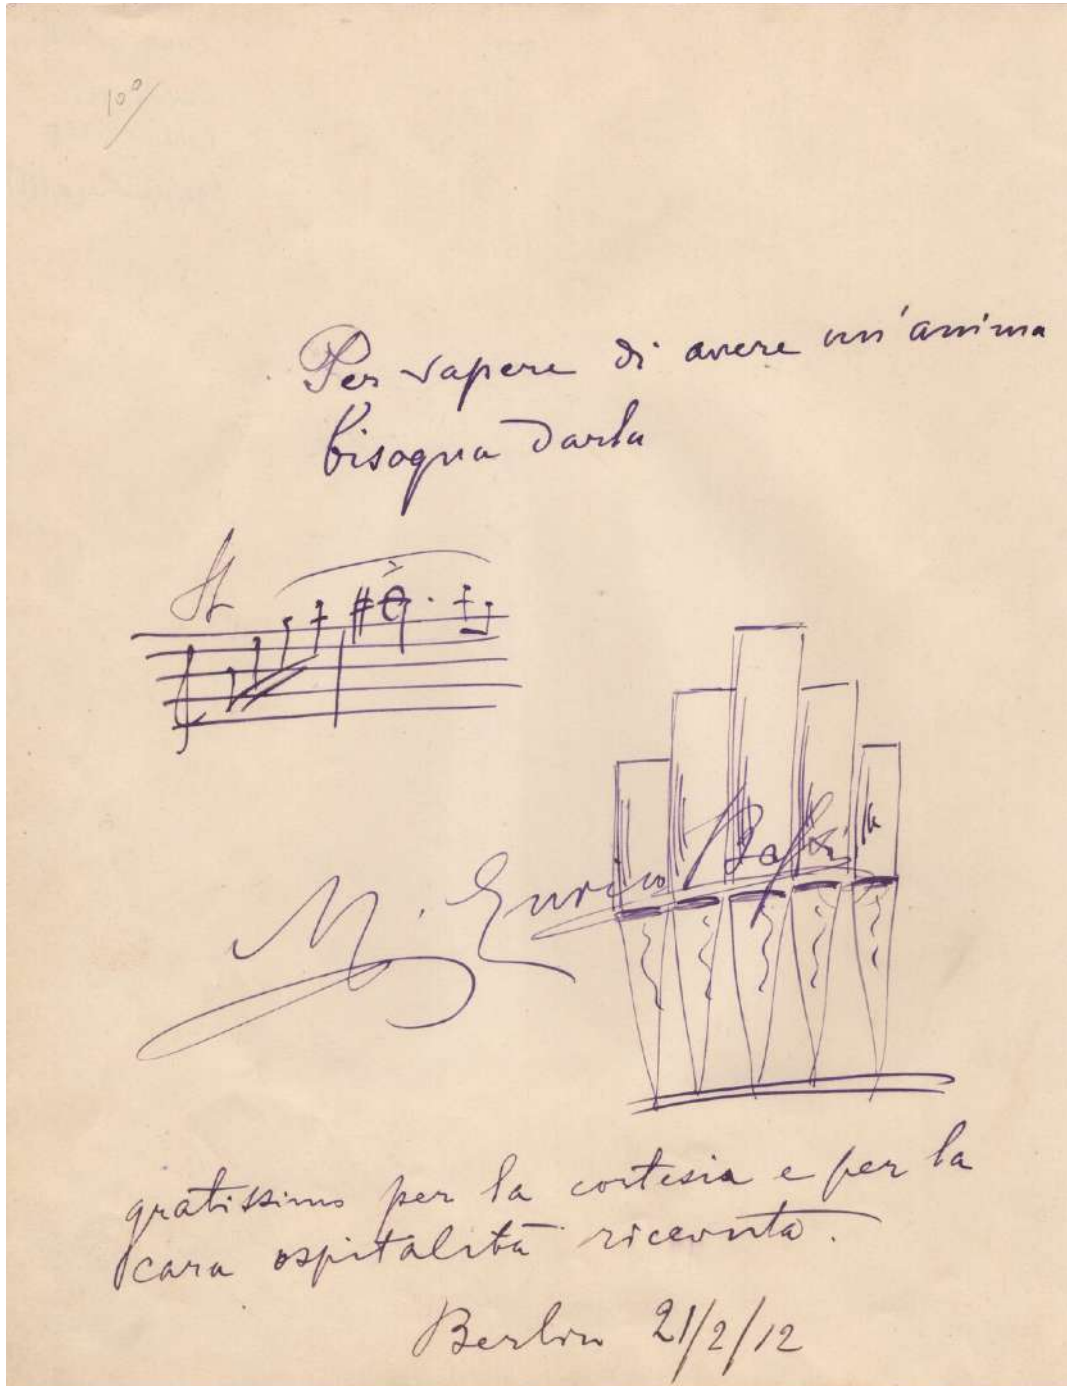 100
Per sapere di avere un'anima
bisogna darla
M. Enrico
gratissimo per la cortesia e per la
cara ospitalità ricevuta.
Berlin 21/2/12